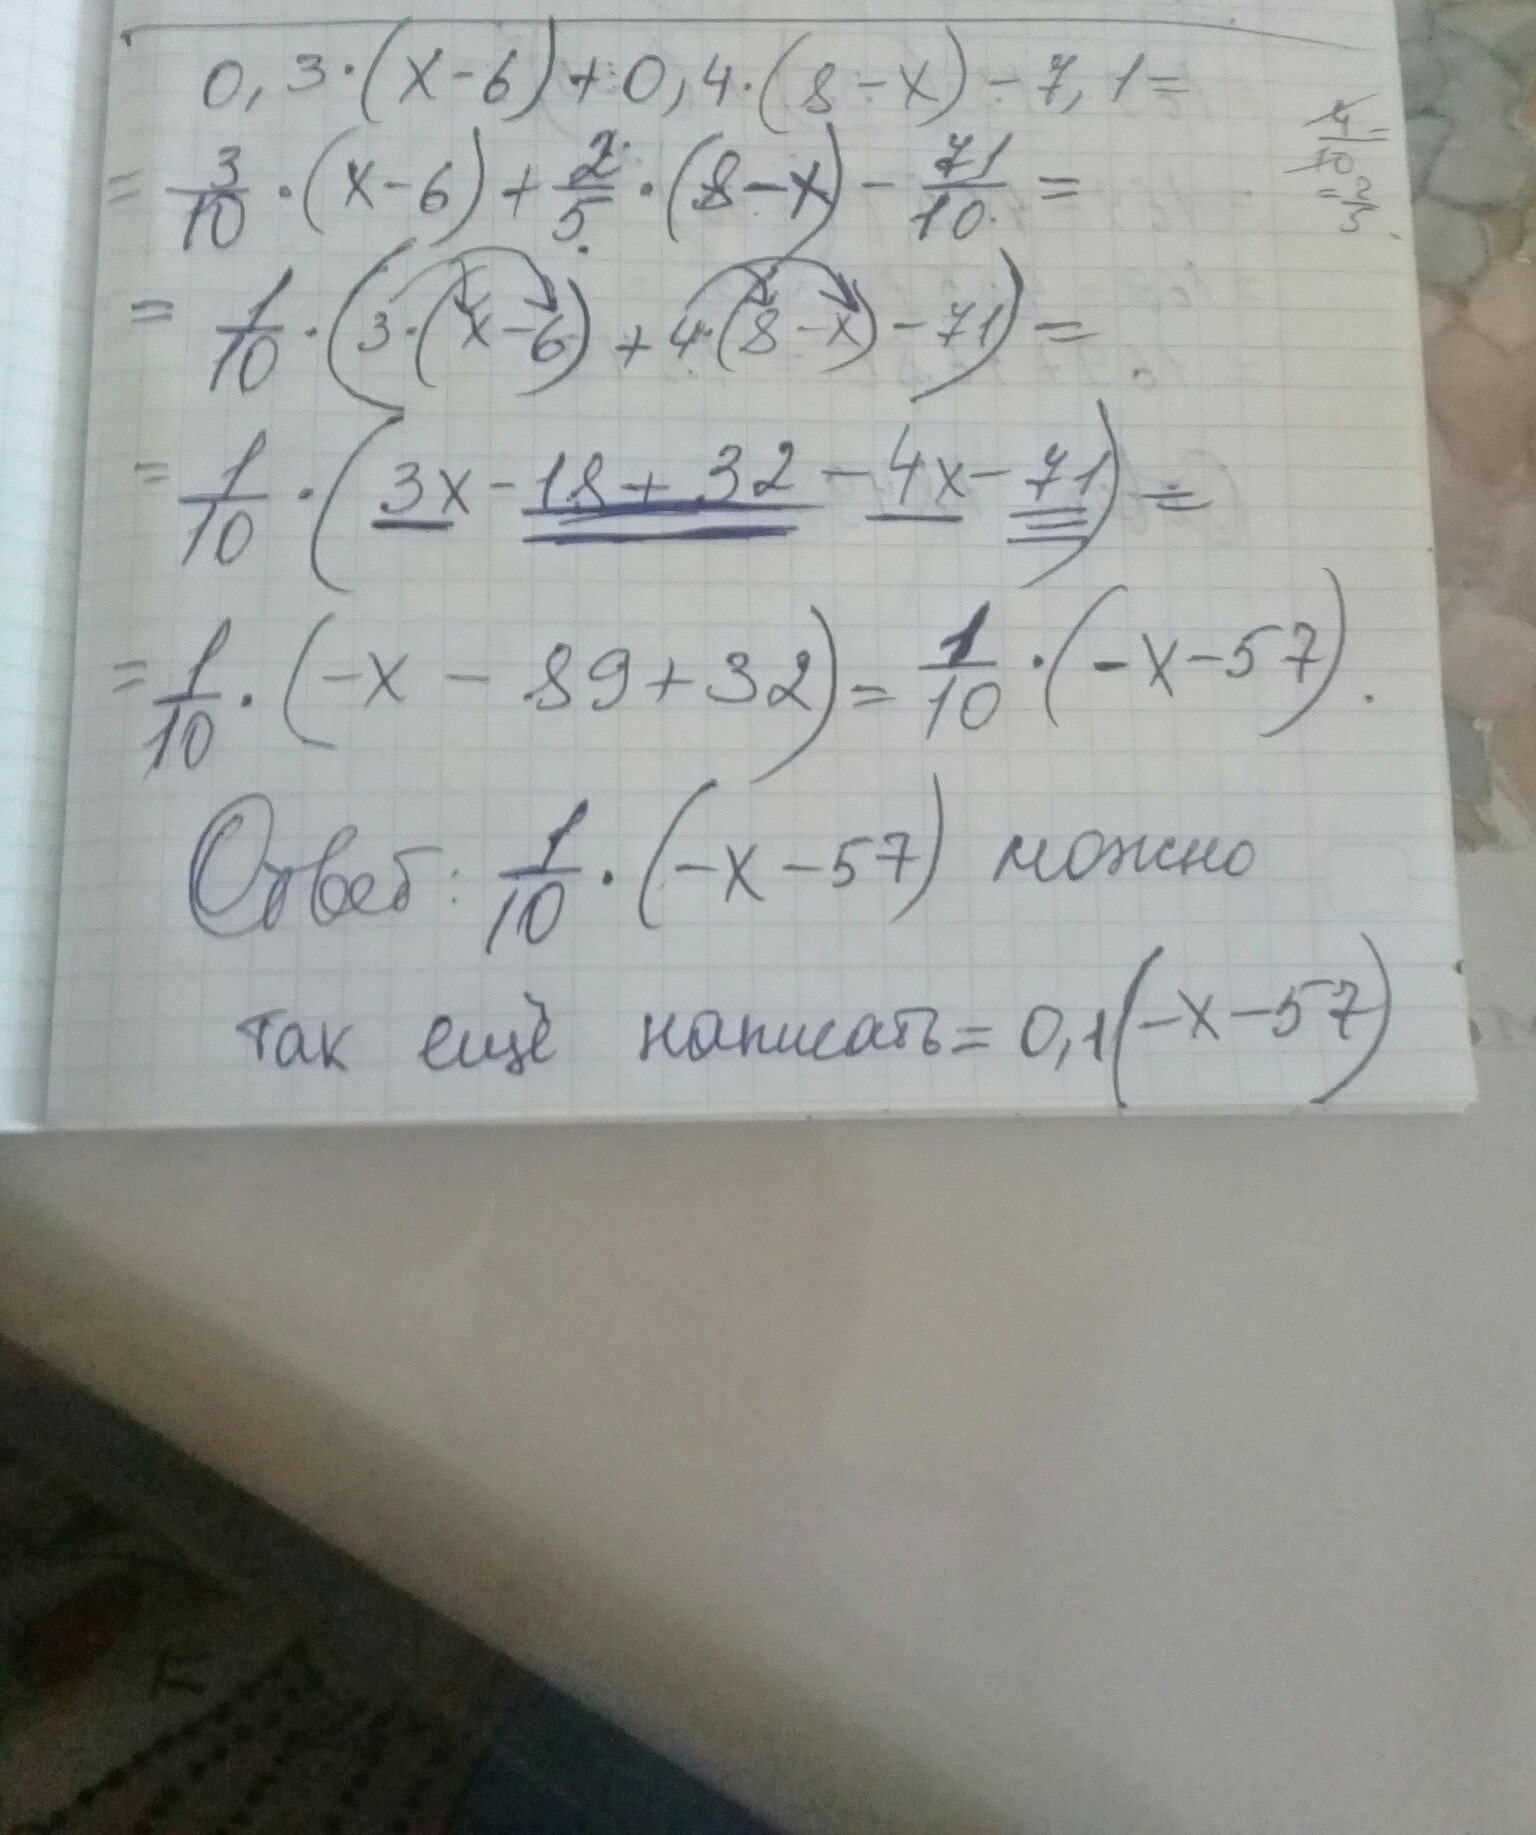 0,3·(x-6)+0,4·(8-x)-7,1=
= 3/10 ·(x-6)+ 2/5 ·(8-x)- 71/10 =
4/10 =
= 2/5
= 1/10 ·(3·(x-6)+4·(8-x)-71)=
= 1/10 ·(3x-18+32-4x-71)=
= 1/10 ·(-x-89+32)= 1/10 ·(-x-57).
Ответ: 1/10 ·(-x-57) можно
так ещё написать=0,1(-x-57)